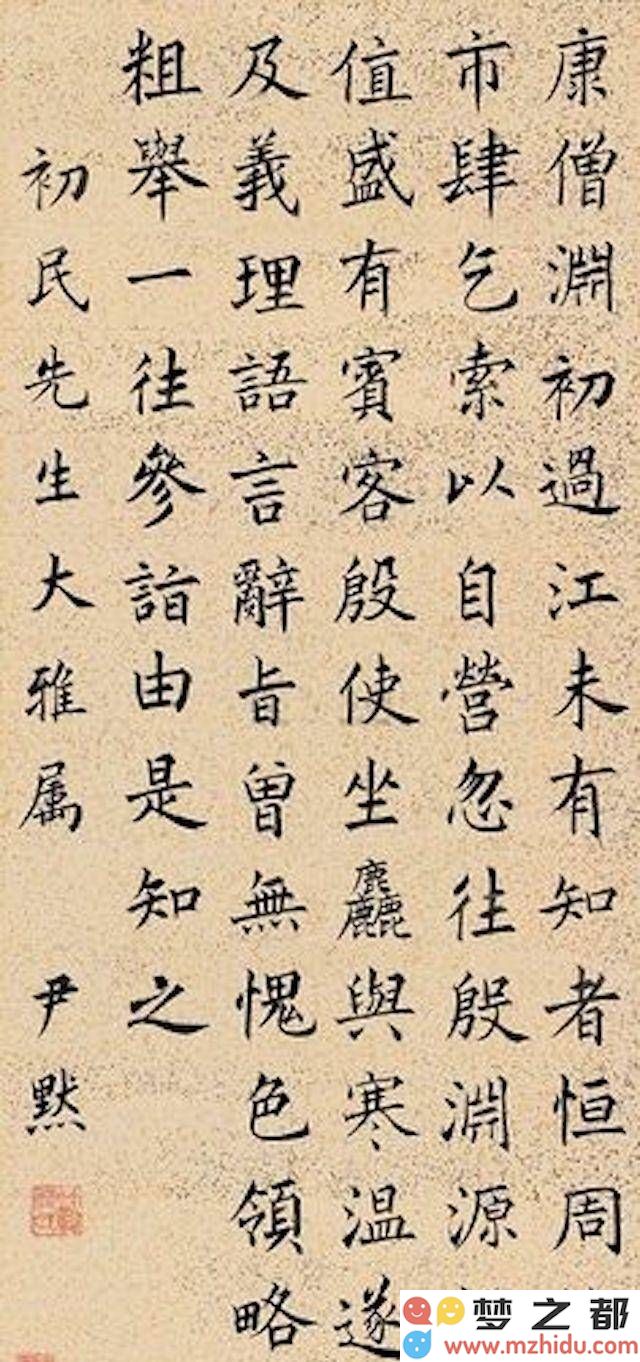 康僧淵初過江未有知者恒周
市肆乞索以自營忽往殷淵源
值盛有賓客殷使坐麤與寒温遂
及義理語言辭旨曾無愧色領略
粗舉一往參詣由是知之
初民先生大雅属 尹默
梦之都
www.mzhidu.com